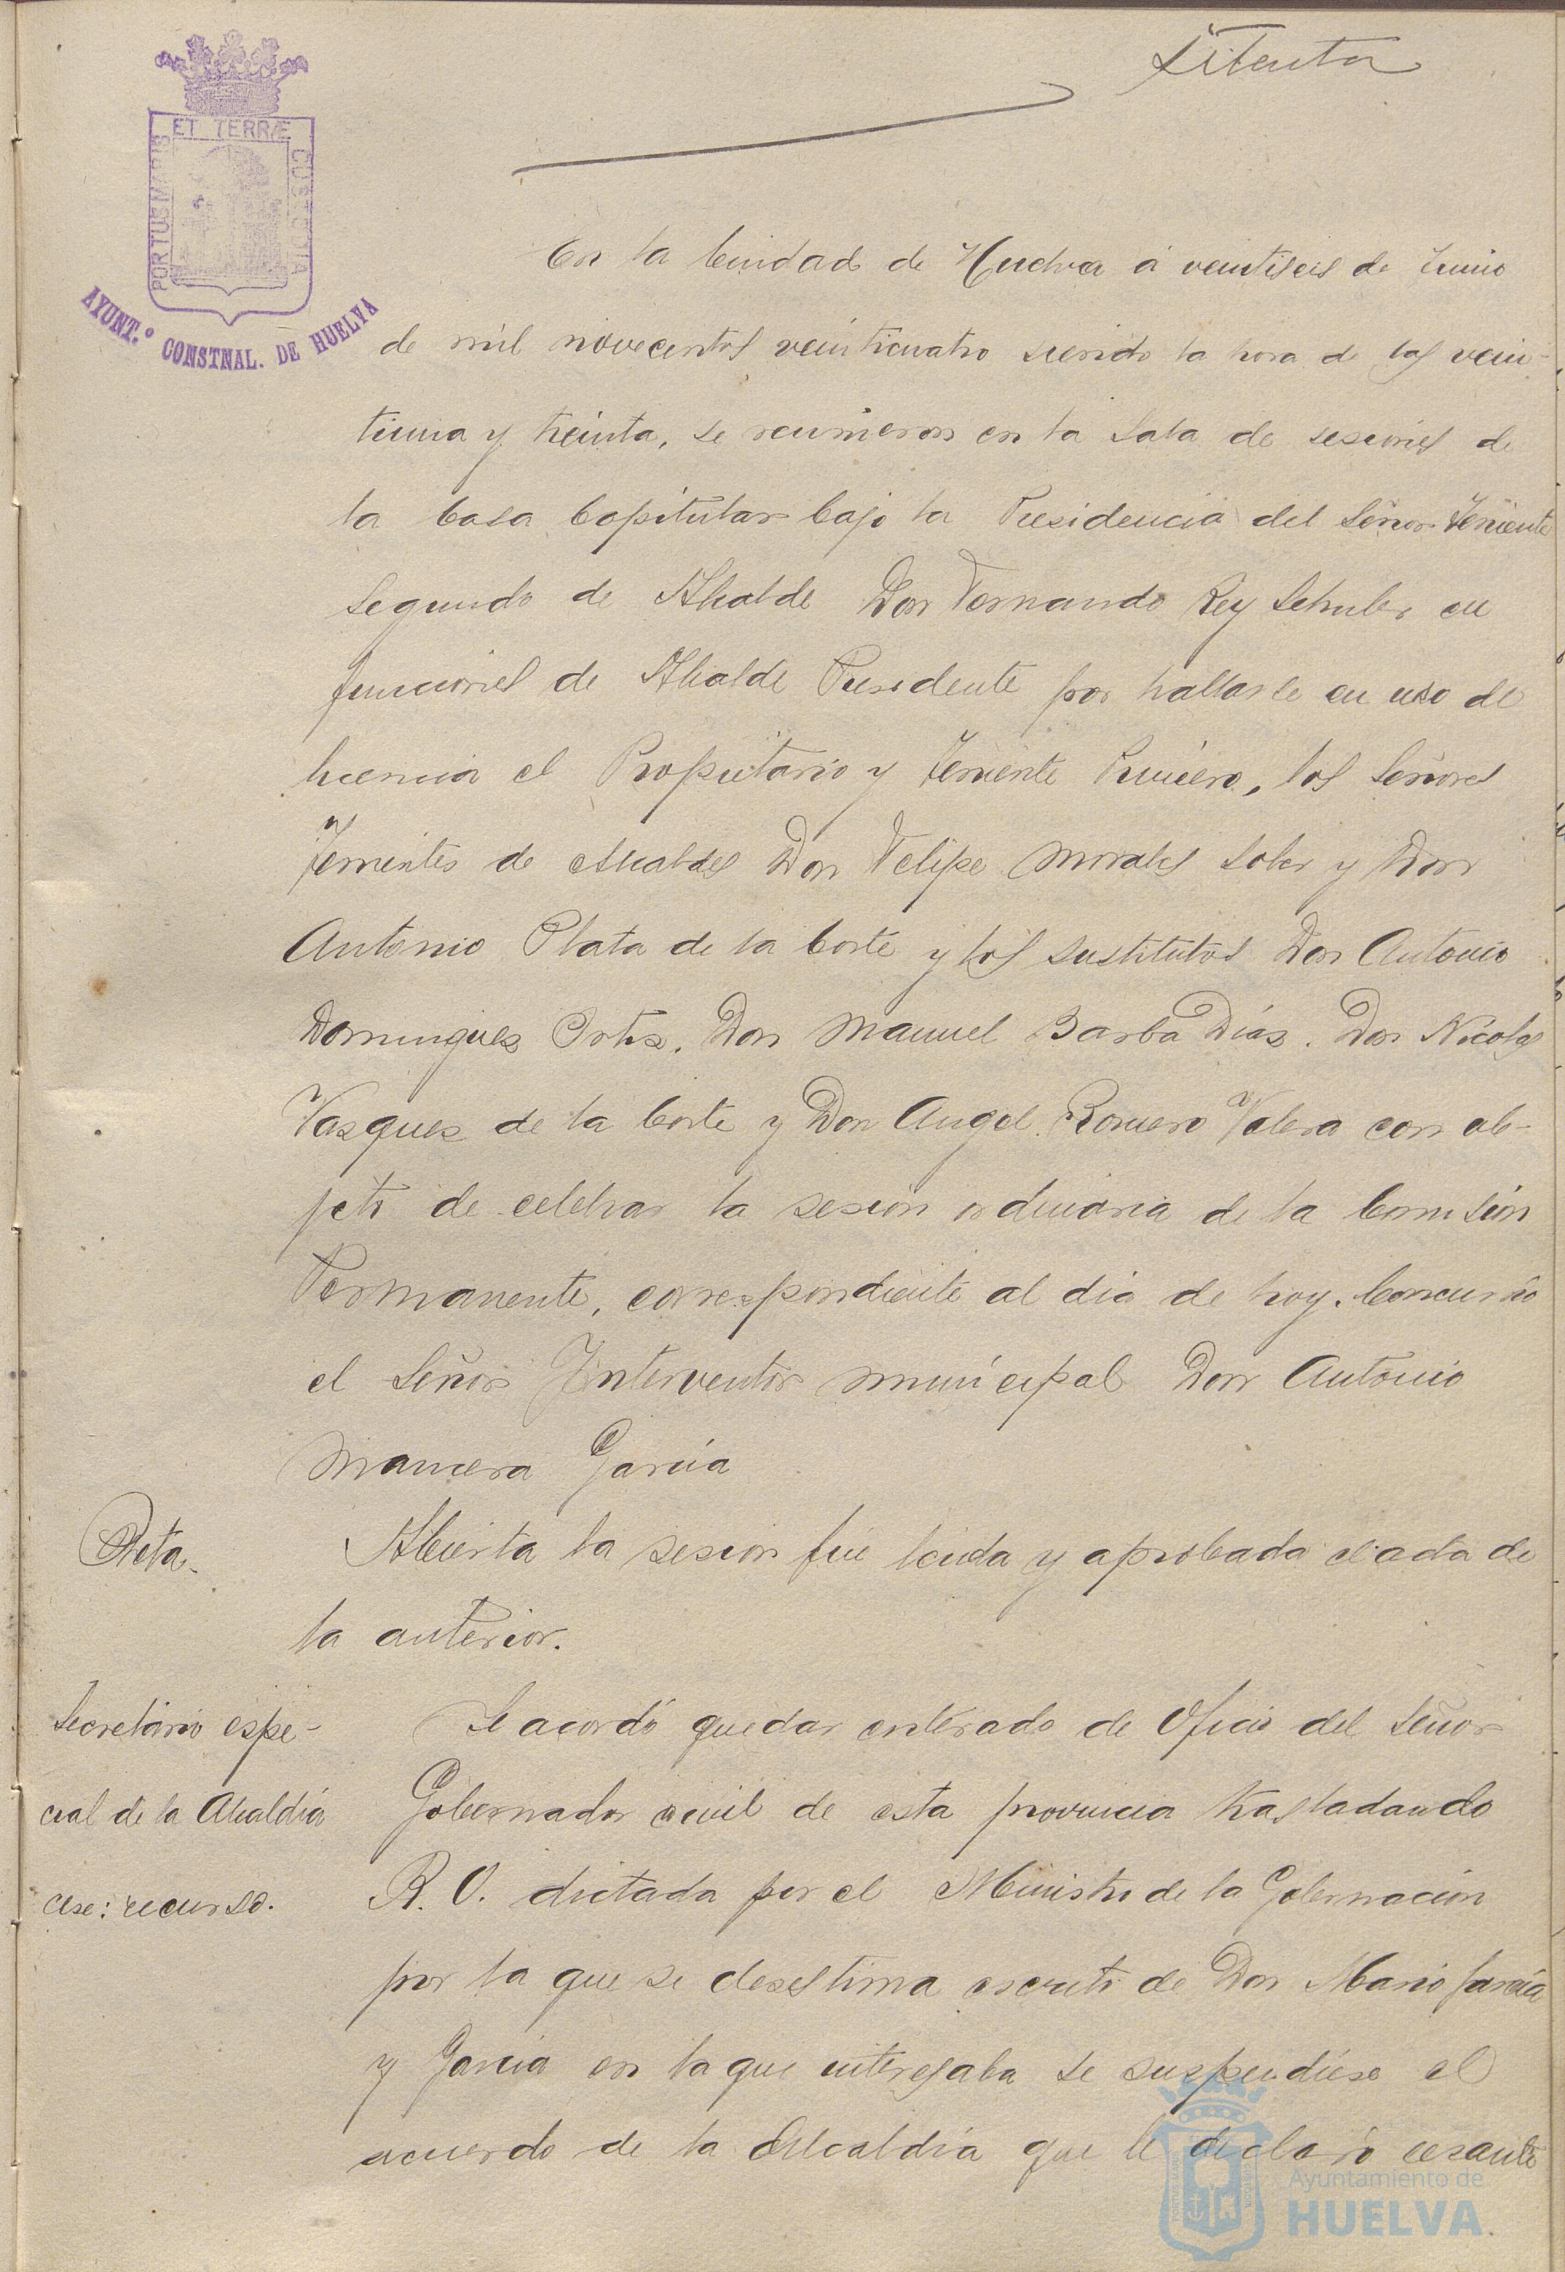 Setenta
ET TERRÆ
PORTUS MARIS
CUSTODIA
AYUNT.º CONSTNAL. DE HUELVA
En la Ciudad de Huelva á veintiseis de Junio
de mil novecentos veinticuatro siendo la hora de las vein-
tiuna y treinta, se reunieron en la Sala de sesiones de
la Casa Capitular bajo la Presidencia del Señor Teniente
Segundo de Alcalde Don Fernando Rey Schuler en
funciones de Alcalde Presidente por hallarse en uso de
licencia el Propietario y Teniente Primero, los Señores
Tenientes de Alcaldes Don Felipe Morales Soler y Don
Antonio Plata de la Corte y los sustitutos Don Antonio
Domingues Ortiz. Don Manuel Barba Dias. Don Nicolas
Vasques de la Corte y Don Angel Romero Valera con ob-
jeto de celebrar la sesion ordinaria de la Comision
Permanente, correspondiente al dia de hoy. Concurrió
el Señor Interventor municipal Don Antonio
Mancera García
Acta.
Abierta la sesion fue leida y aprobada el acta de
la anterior.
Secretário espe-
cial de la Alcaldía
cese: recurso.
Se acordó quedar enterado de Oficio del Señor
Gobernador civil de esta provincia trasladando
R. O. dictada por el Ministro de la Gobernación
por la que se desestima escrito de Don Mario García
y García en la que interesaba se suspendiese el
acuerdo de la Alcaldía que le declaró cesante
Ayuntamiento de
HUELVA